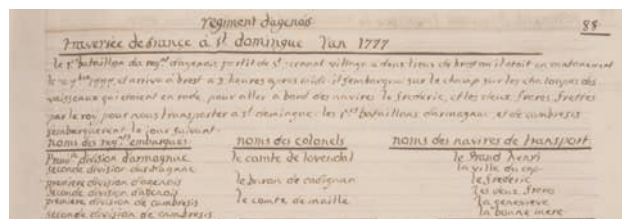 regiment dagenois
88
traversée de france à st domingue l'an 1777
le 1er bataillon du regnt dagenois partit de st renant village a deux lieux de brest ou il etait en cantonnement
le 27 et arriva a brest a 3 heures apres midi il sembarqua sur le champ sur les chaloupes des
vaisseaux qui etoient en rade, pour aller a bord des navires le frederic, et les deux freres frettes
par le roy pour nous transporter a st domingue: les bataillons darmagnac et de cambresis
sembarquerent le jour suivant.
noms des regnts embarques noms des colonels noms des navires de transport
division darmagnac le comte de lovendal le grand henri
seconde division darmagnac la ville du cap
premiere division dagenois le baron de cadignan le frederic
seconde division dagenois les deux freres
premiere division de cambresis le comte de maille la genevieve
seconde division de cambresis la bonne mere